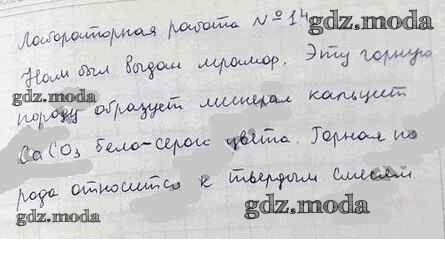 Лабораторная работа № 14
gdz.moda
Нам был выдан мрамор. Эту горную
gdz.moda
gdz.moda
породу образует минерал кальцит
CaCO3 бело-серого цвета. Горная по
gdz.moda
рода относится к твердым смесям.
gdz.moda
gdz.moda